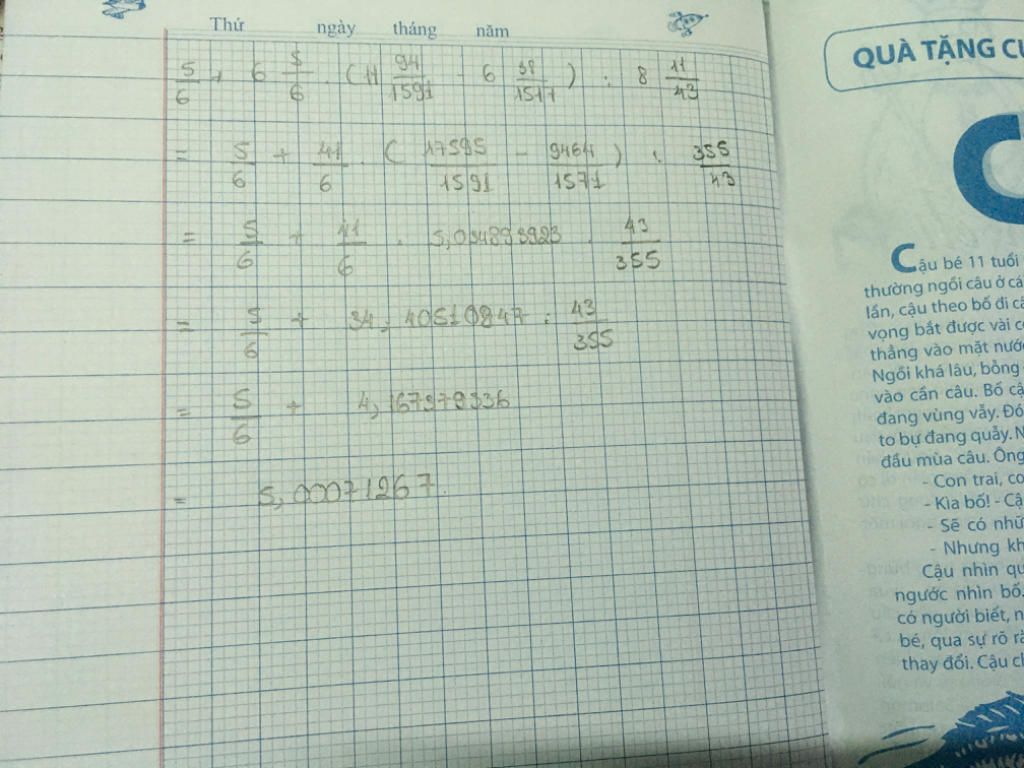 Thứ ngày tháng năm
5/6 + 6 5/6 . (11 94/1591 - 6 38/1517) : 8 11/43
= 5/6 + 41/6 . (17595/1591 - 9464/1571) : 355/43
= 5/6 + 41/6 . 5,034893923 . 43/355
= 5/6 + 34,40510847 : 43/355
= 5/6 + 4,167379336
= 5,00071267
QUÀ TẶNG
Cậu bé 11 tuổi
thường ngồi câu ở
lần, cậu theo bố đi
vọng bắt được vài
thẳng vào mặt nước
Ngồi khá lâu, bỗng
vào cần câu. Bố
đang vùng vẫy.
to bự đang quẫy.
đầu mùa câu. Ông
- Con trai,
- Kìa bố! -
- Sẽ có
- Nhưng
Cậu nhìn
ngước nhìn bố.
có người biết,
bé, qua sự rõ
thay đổi. Cậu